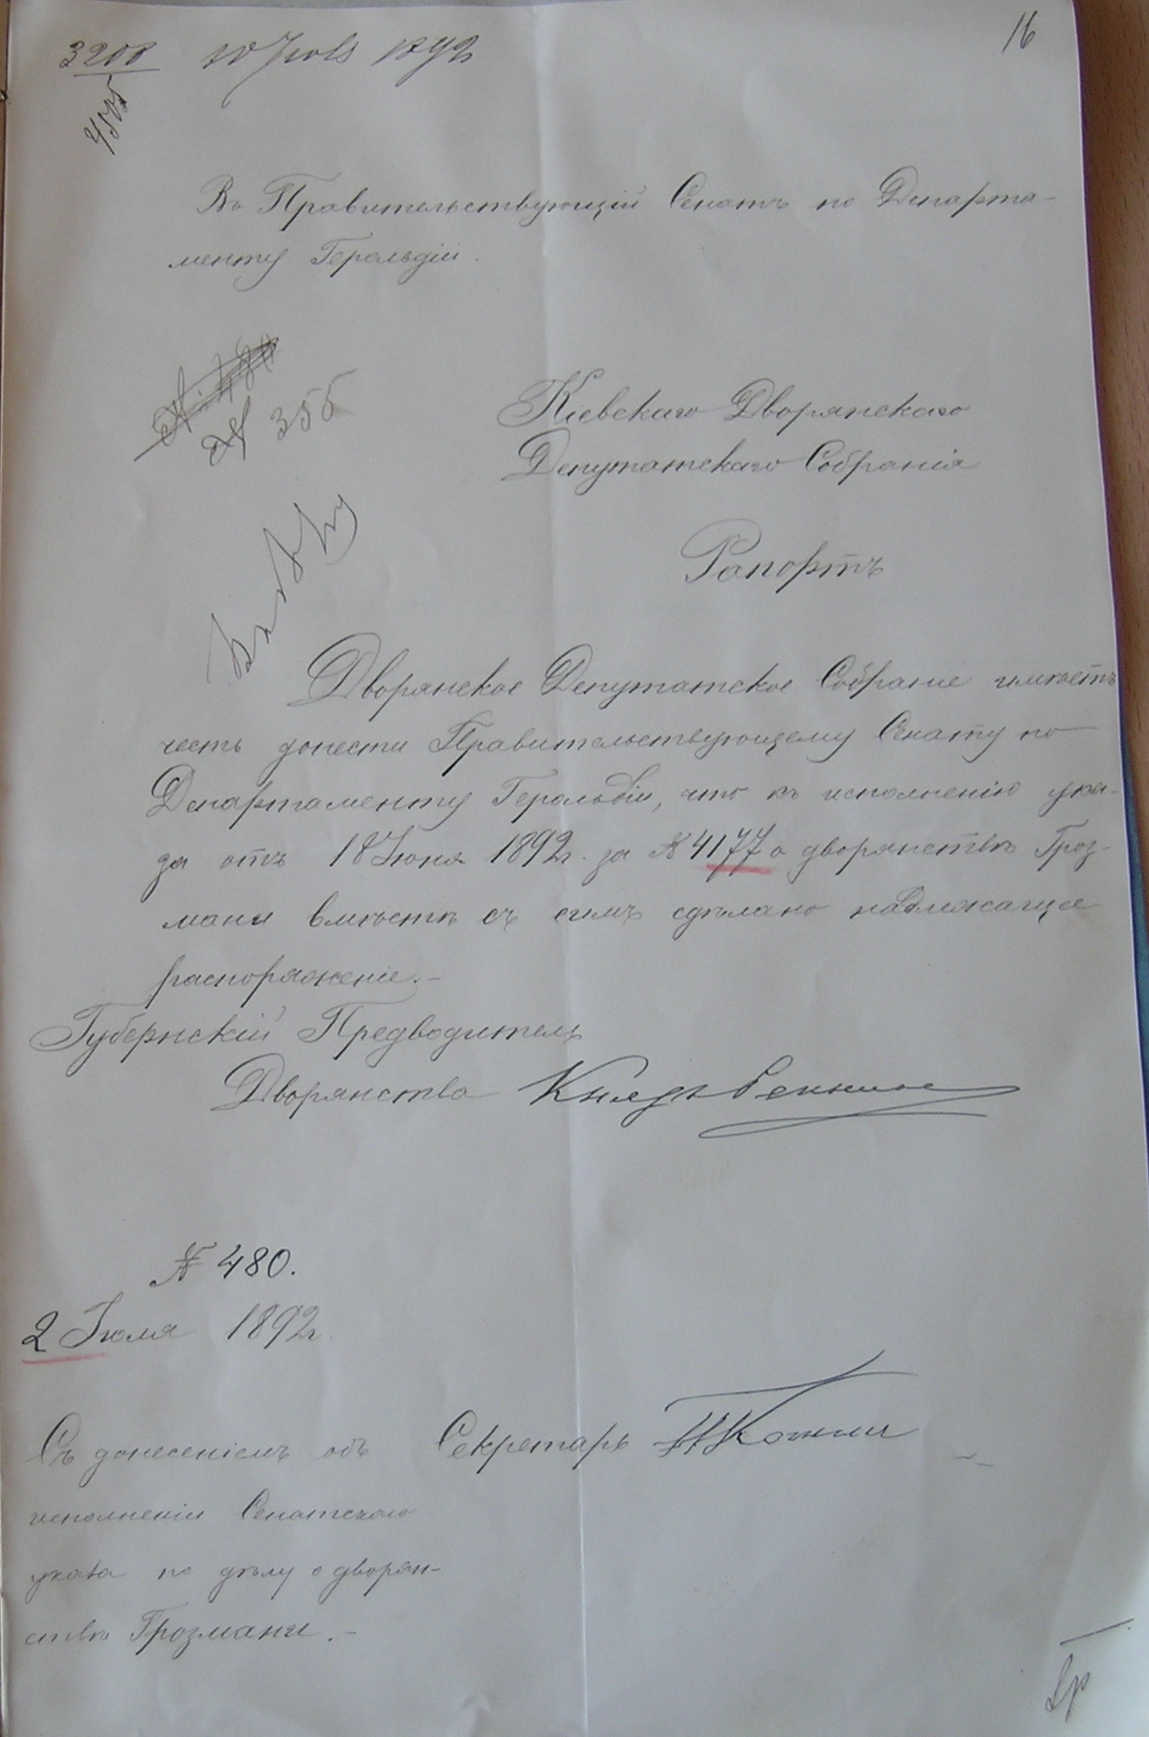 16
3208 10 Іюля 1892
Въ Правительствующій Сенатъ по Департа-
менту Герольдіи.
№ 480
№ 355
Кіевскаго Дворянскаго
Депутатскаго Собранія
Рапортъ
Дворянское Депутатское Собраніе имѣетъ
честь донести Правительствующему Сенату по
Департаменту Герольдіи, что къ исполненію ука-
за отъ 18 Іюня 1892 г. за № 4177 о дворянствѣ Гроз-
мани вмѣстѣ съ симъ сдѣлано надлежащее
распоряженіе.-
Губернскій Предводитель
Дворянства Князь Репнинъ
№ 480.
2 Іюля 1892 г.
Съ донесеніемъ объ Секретарь
исполненіи Сенатскаго
указа по дѣлу о дворян-
ствѣ Грозмани.-